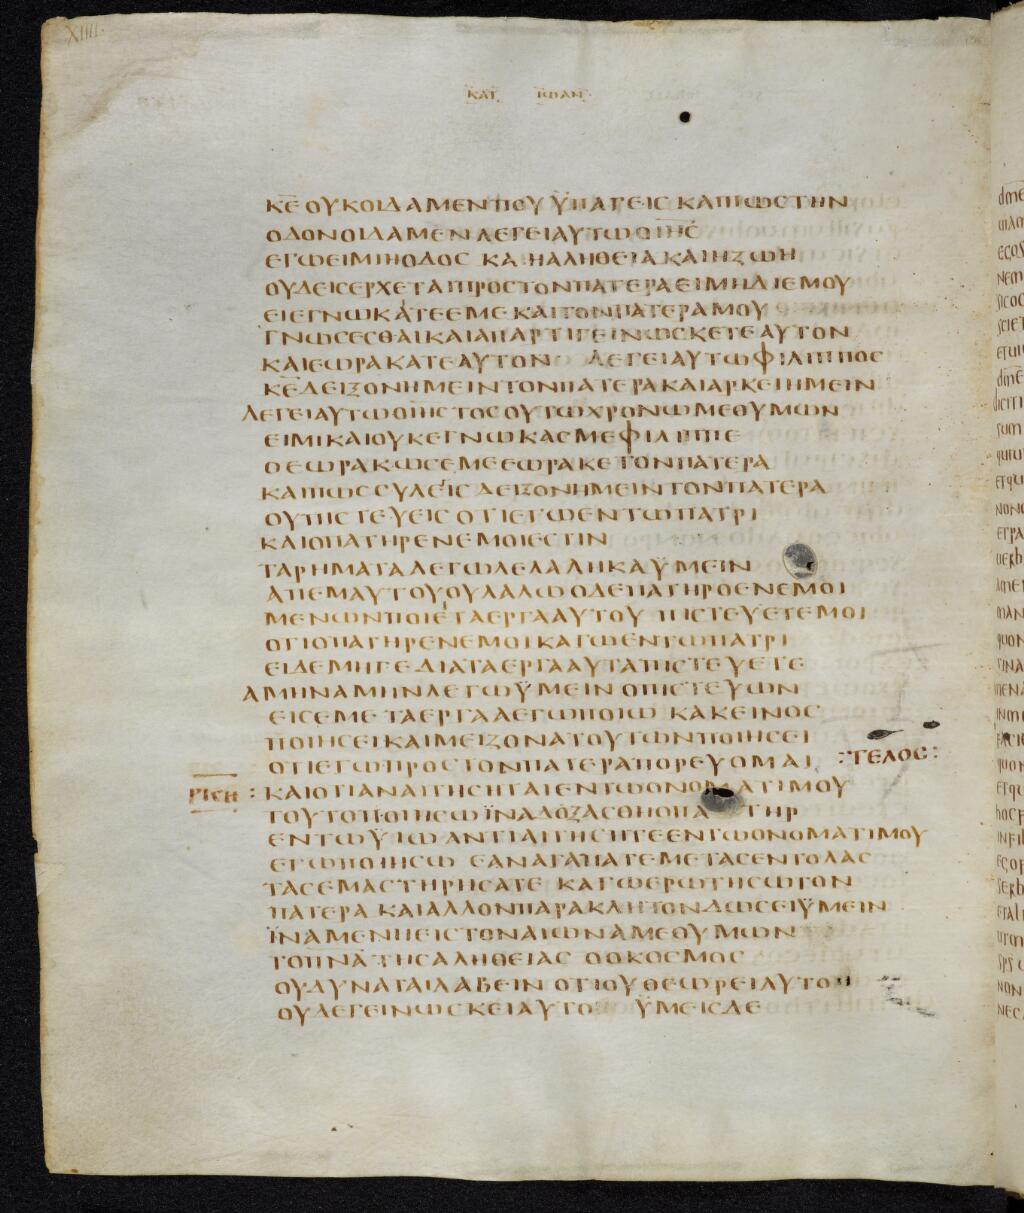 XIIII
ΚΑΤ ΙΩΑΝ
ΚΕ ΟΥΚΟΙΔΑΜΕΝ ΠΟΥ ΫΠΑΓΕΙΣ ΚΑΙ ΠΩΣ ΤΗΝ
ΟΔΟΝ ΟΙΔΑΜΕΝ ΛΕΓΕΙ ΑΥΤΩ Ο ΙΗΣ
ΕΓΩ ΕΙΜΙ Η ΟΔΟΣ ΚΑΙ Η ΑΛΗΘΕΙΑ ΚΑΙ Η ΖΩΗ
ΟΥΔΕΙΣ ΕΡΧΕΤΑΙ ΠΡΟΣ ΤΟΝ ΠΑΤΕΡΑ ΕΙ ΜΗ ΔΙ ΕΜΟΥ
ΕΙ ΕΓΝΩΚΑΤΕ ΕΜΕ ΚΑΙ ΤΟΝ ΠΑΤΕΡΑ ΜΟΥ
ΓΝΩΣΕΣΘΑΙ ΚΑΙ ΑΠ ΑΡΤΙ ΓΕΙΝΩΣΚΕΤΕ ΑΥΤΟΝ
ΚΑΙ ΕΩΡΑΚΑΤΕ ΑΥΤΟΝ ΛΕΓΕΙ ΑΥΤΩ ΦΙΛΙΠΠΟΣ
ΚΕ ΔΕΙΞΟΝ ΗΜΕΙΝ ΤΟΝ ΠΑΤΕΡΑ ΚΑΙ ΑΡΚΕΙ ΗΜΕΙΝ
ΛΕΓΕΙ ΑΥΤΩ Ο ΙΗΣ ΤΟΣΟΥΤΩ ΧΡΟΝΩ ΜΕΘ ΥΜΩΝ
ΕΙΜΙ ΚΑΙ ΟΥΚ ΕΓΝΩΚΑΣ ΜΕ ΦΙΛΙΠΠΕ
Ο ΕΩΡΑΚΩΣ ΕΜΕ ΕΩΡΑΚΕ ΤΟΝ ΠΑΤΕΡΑ
ΚΑΙ ΠΩΣ ΣΥ ΛΕΓΙΣ ΔΕΙΞΟΝ ΗΜΕΙΝ ΤΟΝ ΠΑΤΕΡΑ
ΟΥ ΠΙΣΤΕΥΕΙΣ ΟΤΙ ΕΓΩ ΕΝ ΤΩ ΠΑΤΡΙ
ΚΑΙ Ο ΠΑΤΗΡ ΕΝ ΕΜΟΙ ΕΣΤΙΝ
ΤΑ ΡΗΜΑΤΑ Α ΛΕΓΩ ΛΕΛΑΛΗΚΑ ΫΜΕΙΝ
ΑΠ ΕΜΑΥΤΟΥ ΟΥ ΛΑΛΩ Ο ΔΕ ΠΑΤΗΡ Ο ΕΝ ΕΜΟΙ
ΜΕΝΩΝ ΠΟΙΕΙ ΤΑ ΕΡΓΑ ΑΥΤΟΥ ΠΙΣΤΕΥΕΤΕ ΜΟΙ
ΟΤΙ Ο ΠΑΤΗΡ ΕΝ ΕΜΟΙ ΚΑΓΩ ΕΝ ΤΩ ΠΑΤΡΙ
ΕΙ ΔΕ ΜΗΓΕ ΔΙΑ ΤΑ ΕΡΓΑ ΑΥΤΑ ΠΙΣΤΕΥΕΤΕ
ΑΜΗΝ ΑΜΗΝ ΛΕΓΩ ΫΜΕΙΝ Ο ΠΙΣΤΕΥΩΝ
ΕΙΣ ΕΜΕ ΤΑ ΕΡΓΑ Α ΕΓΩ ΠΟΙΩ ΚΑΚΕΙΝΟΣ
ΠΟΙΗΣΕΙ ΚΑΙ ΜΕΙΖΟΝΑ ΤΟΥΤΩΝ ΠΟΙΗΣΕΙ
ΟΤΙ ΕΓΩ ΠΡΟΣ ΤΟΝ ΠΑΤΕΡΑ ΠΟΡΕΥΟΜΑΙ :ΤΕΛΟΣ:
: ΚΑΙ Ο ΤΙ ΑΝ ΑΙΤΗΣΗΤΑΙ ΕΝ ΤΩ ΟΝΟΜΑΤΙ ΜΟΥ
ΤΟΥΤΟ ΠΟΙΗΣΩ ΪΝΑ ΔΟΞΑΣΘΗ Ο ΠΑΤΗΡ
ΕΝ ΤΩ ΫΙΩ ΑΝ ΤΙ ΑΙΤΗΣΗΤΕ ΕΝ ΤΩ ΟΝΟΜΑΤΙ ΜΟΥ
ΕΓΩ ΠΟΙΗΣΩ ΕΑΝ ΑΓΑΠΑΤΕ ΜΕ ΤΑΣ ΕΝΤΟΛΑΣ
ΤΑΣ ΕΜΑΣ ΤΗΡΗΣΑΤΕ ΚΑΓΩ ΕΡΩΤΗΣΩ ΤΟΝ
ΠΑΤΕΡΑ ΚΑΙ ΑΛΛΟΝ ΠΑΡΑΚΛΗΤΟΝ ΔΩΣΕΙ ΫΜΕΙΝ
ΪΝΑ ΜΕΝΗ ΕΙΣ ΤΟΝ ΑΙΩΝΑ ΜΕΘ ΥΜΩΝ
ΤΟ ΠΝΑ ΤΗΣ ΑΛΗΘΕΙΑΣ Ο Ο ΚΟΣΜΟΣ
ΟΥ ΔΥΝΑΤΑΙ ΛΑΒΕΙΝ ΟΤΙ ΟΥ ΘΕΩΡΕΙ ΑΥΤΟΝ
ΟΥΔΕ ΓΕΙΝΩΣΚΕΙ ΑΥΤΟ ΫΜΕΙΣ ΔΕ